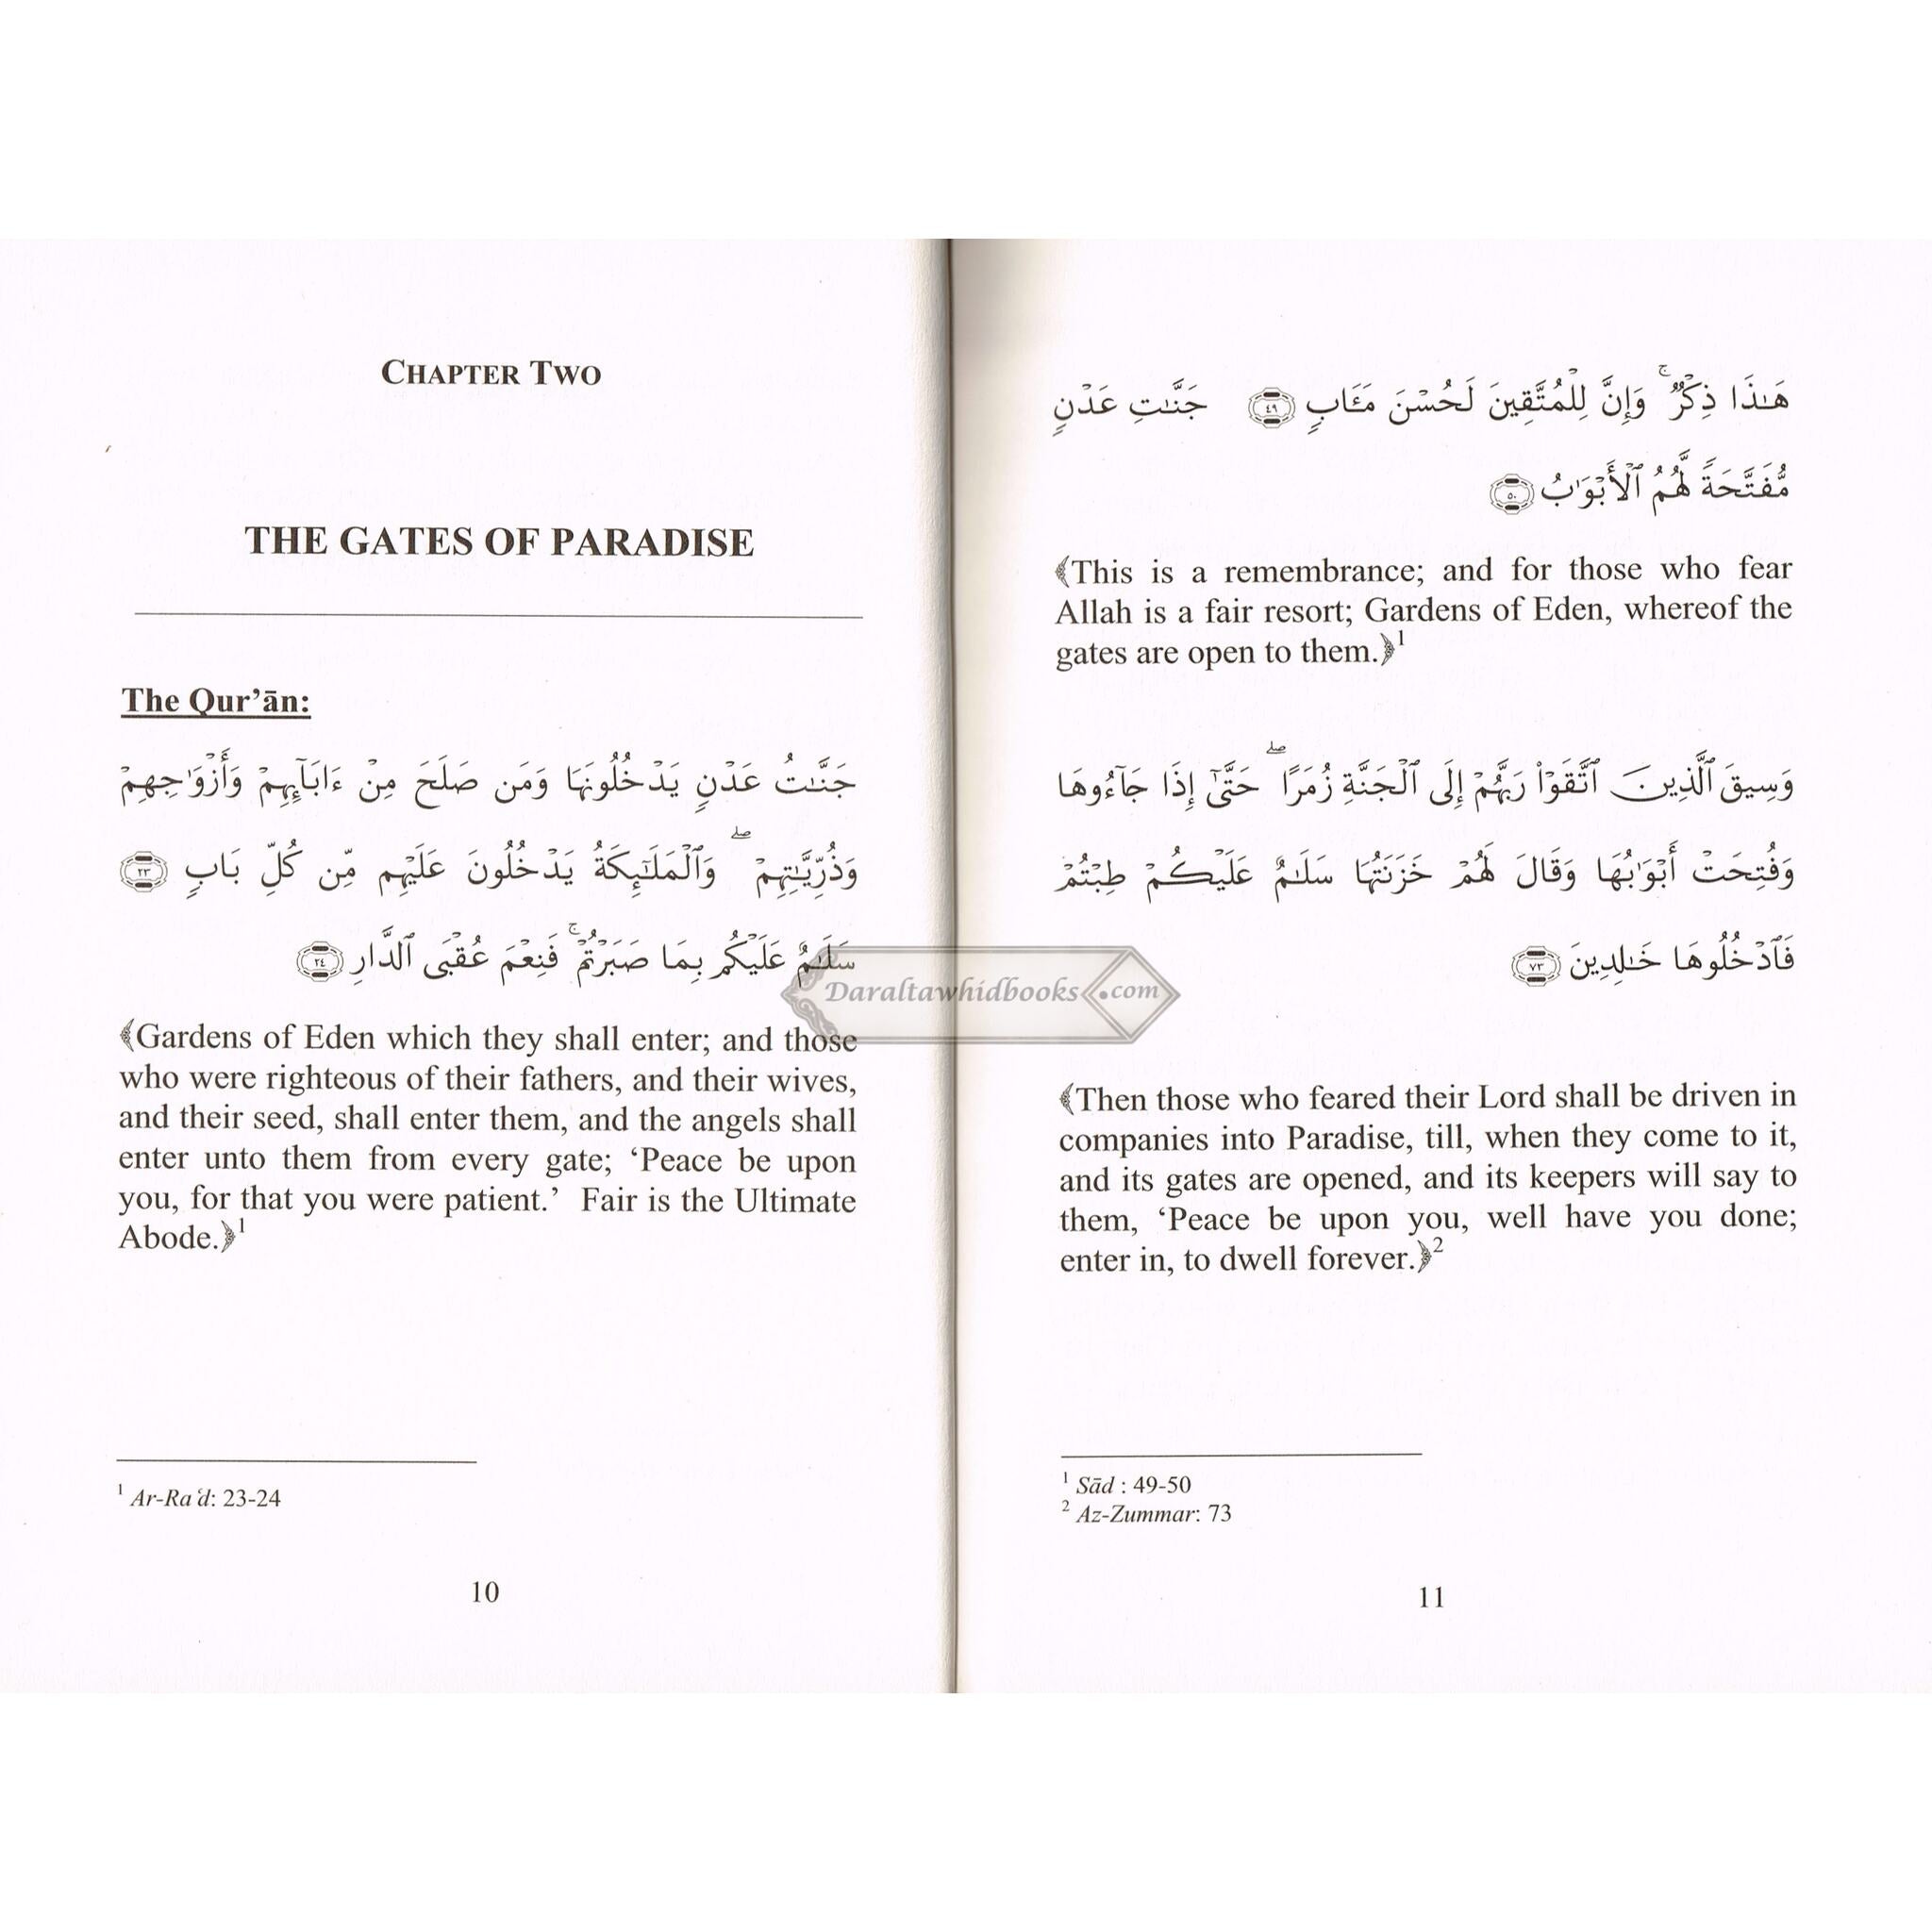 CHAPTER TWO
THE GATES OF PARADISE
The Qur’ān:
جَنَّـٰتُ عَدْنٍ يَدْخُلُونَهَا وَمَن صَلَحَ مِنْ ءَابَآئِهِمْ وَأَزْوَٰجِهِمْ
وَذُرِّيَّـٰتِهِمْ ۖ وَٱلْمَلَـٰٓئِكَةُ يَدْخُلُونَ عَلَيْهِم مِّن كُلِّ بَابٍ ٢٣
سَلَـٰمٌ عَلَيْكُم بِمَا صَبَرْتُمْ ۚ فَنِعْمَ عُقْبَى ٱلدَّارِ ٢٤
﴾Gardens of Eden which they shall enter; and those
who were righteous of their fathers, and their wives,
and their seed, shall enter them, and the angels shall
enter unto them from every gate; ‘Peace be upon
you, for that you were patient.’ Fair is the Ultimate
Abode.﴿1
1 Ar-Ra‘d: 23-24
10
هَـٰذَا ذِكْرٌ ۚ وَإِنَّ لِلْمُتَّقِينَ لَحُسْنَ مَـَٔابٍ ٤٩ جَنَّـٰتِ عَدْنٍ
مُّفَتَّحَةً لَّهُمُ ٱلْأَبْوَٰبُ ٥٠
﴾This is a remembrance; and for those who fear
Allah is a fair resort; Gardens of Eden, whereof the
gates are open to them.﴿1
وَسِيقَ ٱلَّذِينَ ٱتَّقَوْا۟ رَبَّهُمْ إِلَى ٱلْجَنَّةِ زُمَرًا ۖ حَتَّىٰٓ إِذَا جَآءُوهَا
وَفُتِحَتْ أَبْوَٰبُهَا وَقَالَ لَهُمْ خَزَنَتُهَا سَلَـٰمٌ عَلَيْكُمْ طِبْتُمْ
فَٱدْخُلُوهَا خَـٰلِدِينَ ٧٣
﴾Then those who feared their Lord shall be driven in
companies into Paradise, till, when they come to it,
and its gates are opened, and its keepers will say to
them, ‘Peace be upon you, well have you done;
enter in, to dwell forever.﴿2
1 Sād : 49-50
2 Az-Zummar: 73
11
Daraltawhidbooks.com